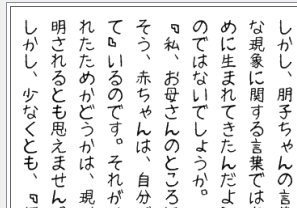 しかし、朋子ちゃんの言
な現象に関する言葉では
めに生まれてきたんだよ
のではないでしょうか。
『私、お母さんのところ
そう、赤ちゃんは、自分
て』いるのです。それが
れたためかどうかは、現
明されるとも思えません
しかし、少なくとも、『